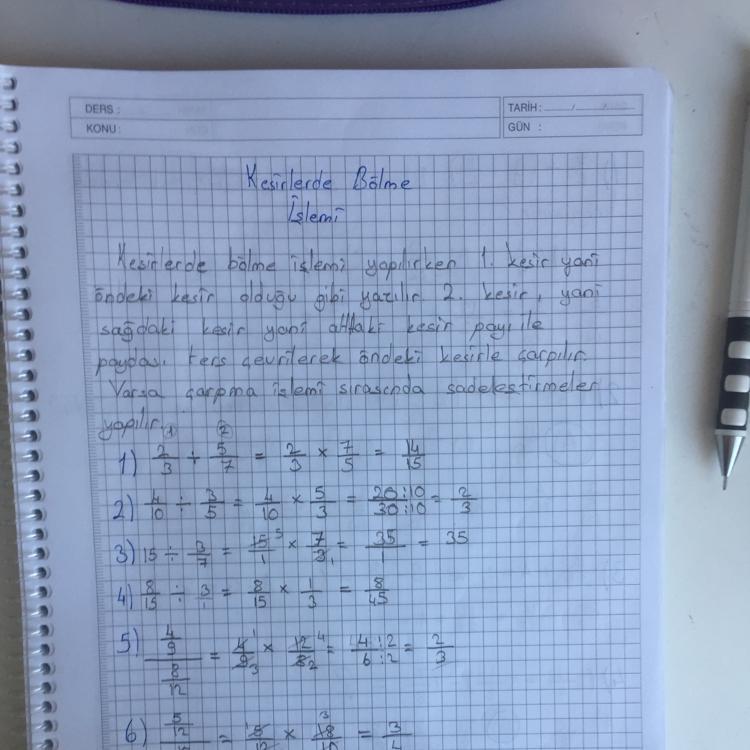 DERS :
KONU:
TARİH: / /
GÜN :
Kesirlerde Bölme
İşlemi
Kesirlerde bölme işlemi yapılırken 1. kesir yani
öndeki kesir olduğu gibi yazılır 2. kesir, yani
sağdaki kesir yani alttaki kesir payı ile
paydası ters çevrilerek öndeki kesirle çarpılır.
Varsa çarpma işlemi sırasında sadeleştirmeler
yapılır.
① ②
1) 2/3 ÷ 5/7 = 2/3 × 7/5 = 14/15
2) 4/10 ÷ 3/5 = 4/10 × 5/3 = 20:10/30:10 = 2/3
3) 15 ÷ 3/7 = 15 5/1 × 7/3 1 = 35/1 = 35
4) 8/15 ÷ 3/1 = 8/15 × 1/3 = 8/45
5) 4/9 / 8/12 = 4 1/9 3 × 12 4/8 2 = 4:2/6:2 = 2/3
6) 5/12 = 5 × 18 3 = 3